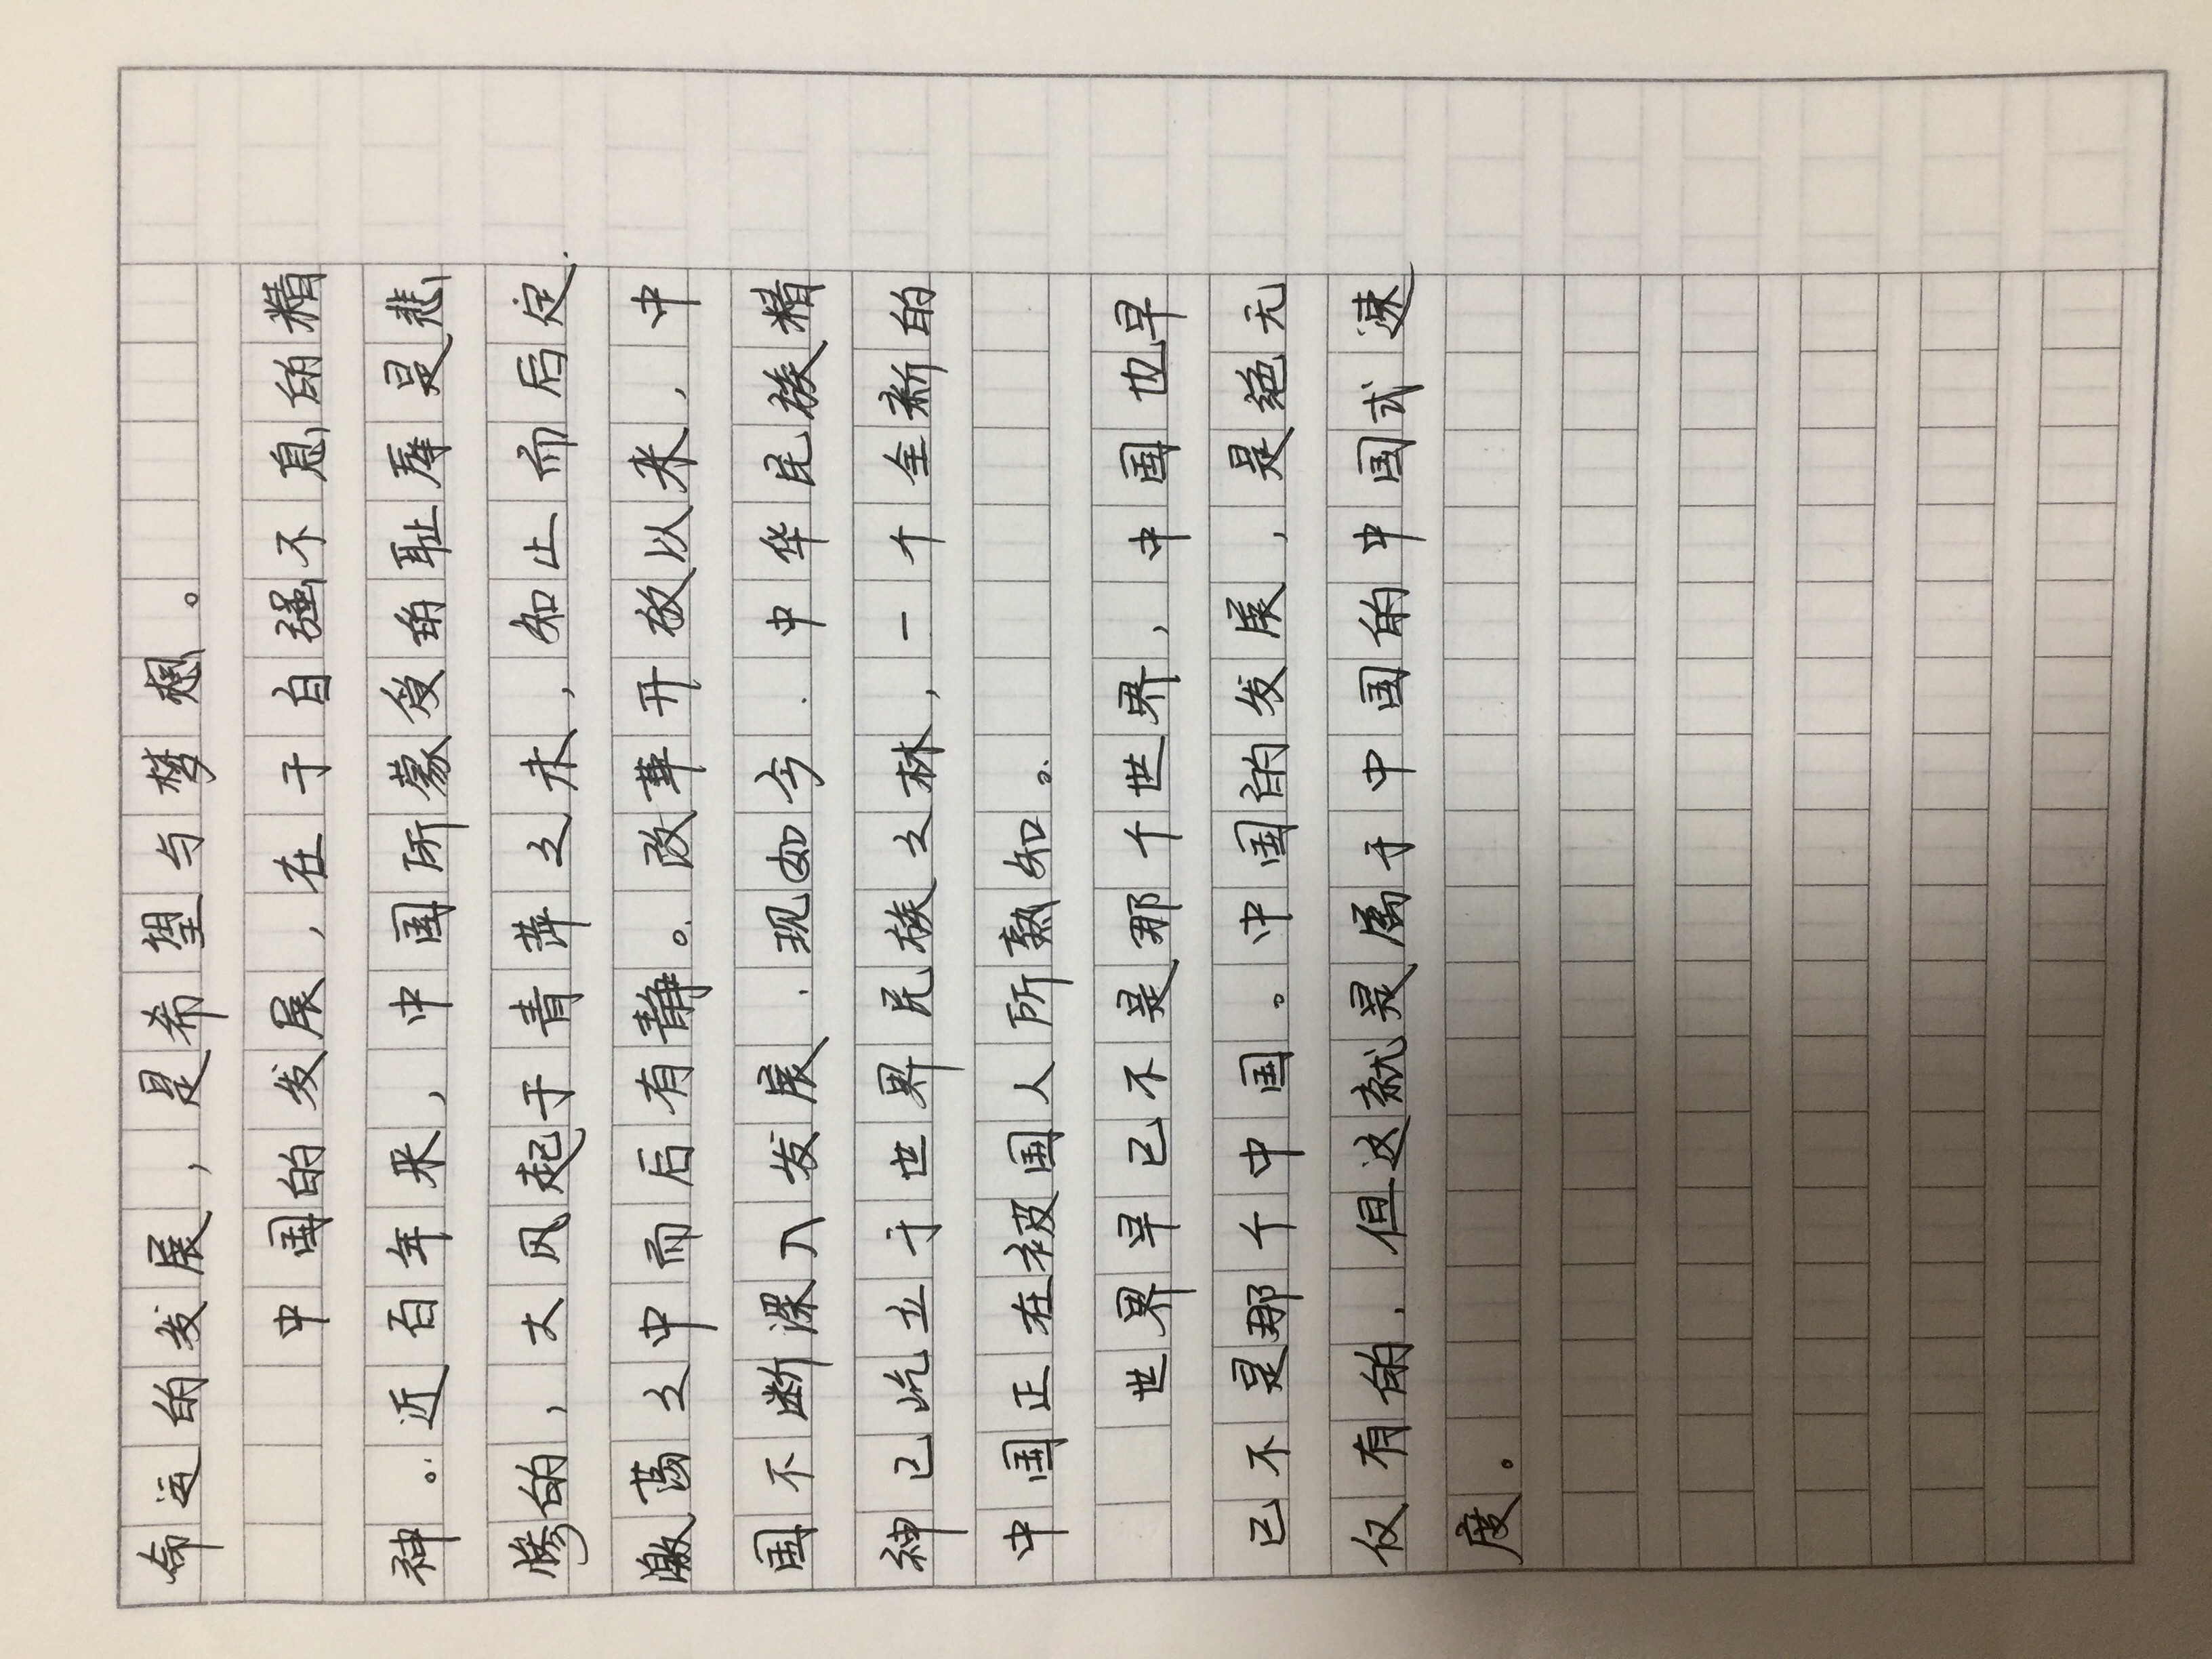 命运的发展，是希望与梦想。
中国的发展，在于自强不息的精
神。近百年来，中国所蒙受的耻辱是悲
惨的，大风起于青萍之末，知止而后定.
激荡之中而后有静。改革开放以来，中
国不断深入发展.现如今.中华民族精
神已屹立于世界民族之林，一个全新的
中国正在被国人所熟知。
世界早已不是那个世界，中国也早
已不是那个中国。中国的发展，是绝无
仅有的，但这就是属于中国的中国式速
度。